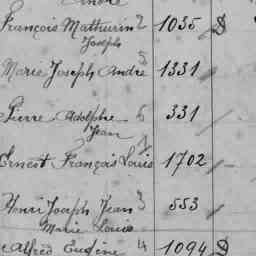 André
François Mathurin 2 1035 D
Joseph
Marie Joseph André 5 1331
Pierre Adolphe 6 331
Jean
Ernest François Louis 1 1702
Henri Joseph Jean 3 553
Marie Louis
Alfred Eugène 4 1094 D